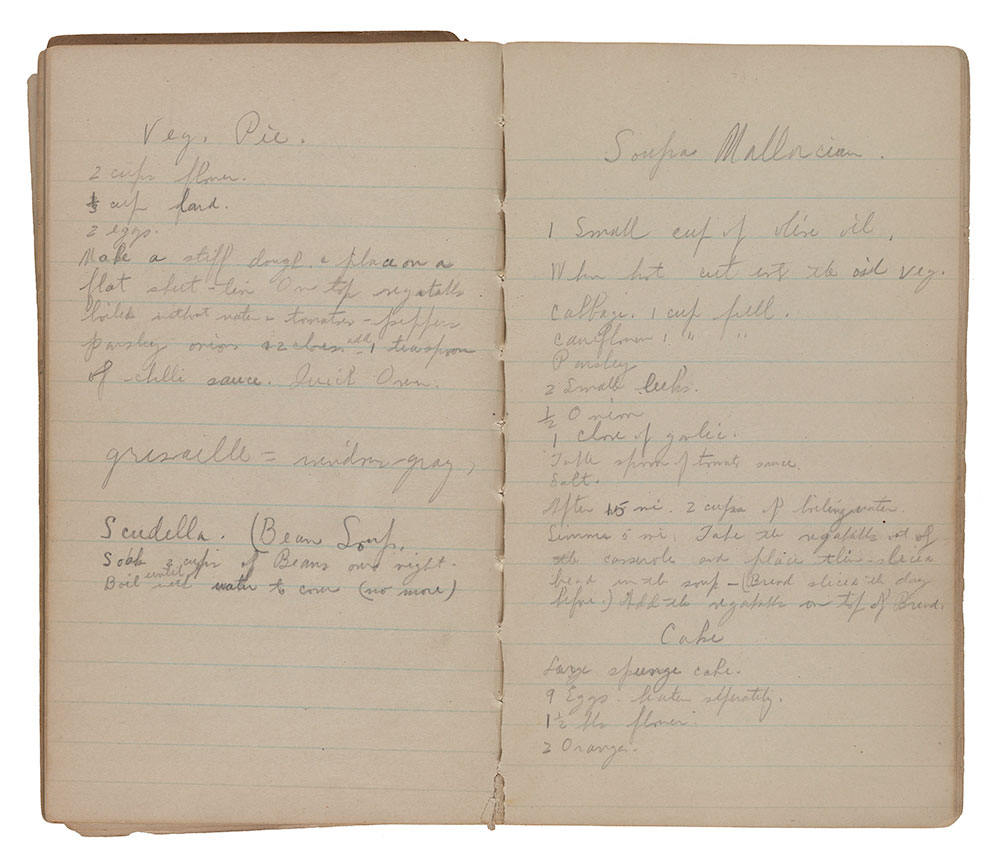 Veg. Pie.
2 cups flower.
1/3 cup lard.
2 eggs.
Make a stiff dough & place on a
flat sheet-tin On top vegatalls
boiled without water - tomatoes - peppers
parsley onions add 1 teaspoon
of chilli sauce. Quick Oven.
grisaille = gray,
Scudella. (Bean Soup.
Soak 2 cups of Beans over night.
Boil until with water to cover (no more)
Soupa Mallorcian.
1 Small cup of olive oil.
When hot cut into the oil veg.
Cabbage. 1 cup full.
Cauflower 1 " "
Parsley
2 Small leeks.
1/2 Onion
1 clove of garlic.
Table spoon of tomato sauce.
Salt.
After 15 mi. 2 cups of boiling water.
Simmer 5 mi. Take the vegatalls out of
the casserole and place thin-sliced
bread in the soup - (Bread sliced the day
before.) Add the vegatalls on top of Bread.
Cake
Large spunge cake.
9 Eggs. beaten seperately.
1 1/2 lb flower.
2 Oranges.